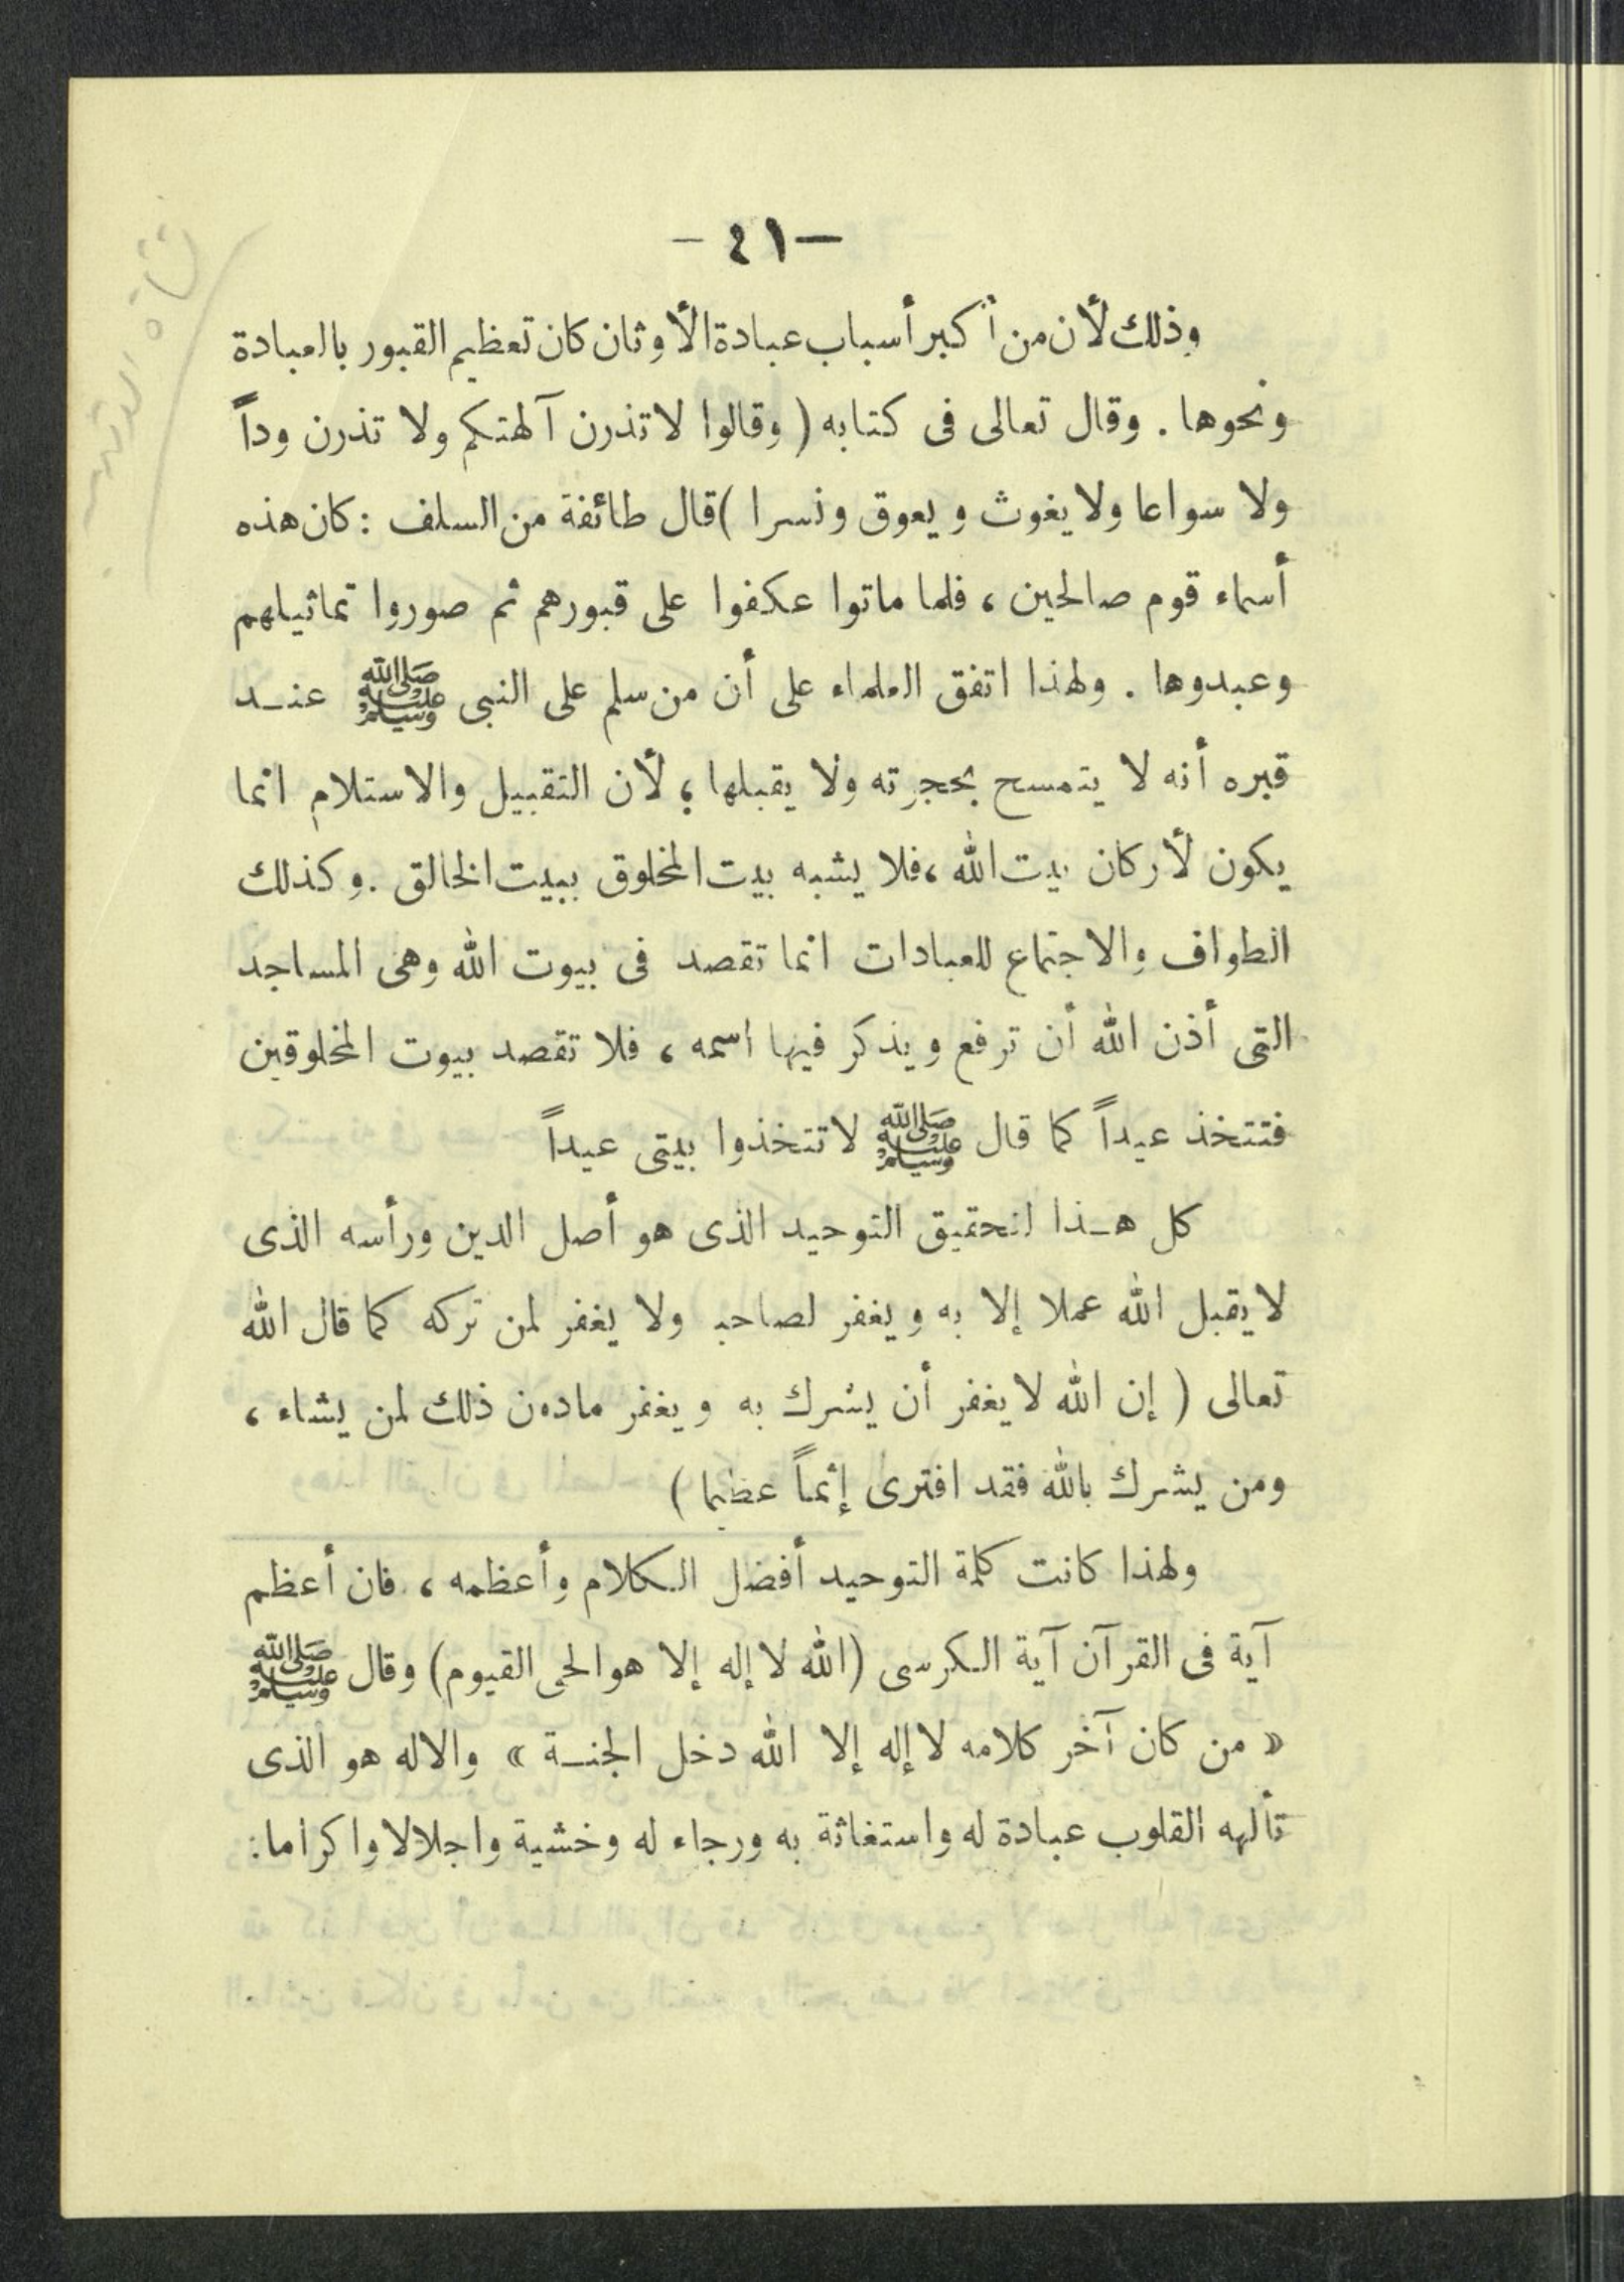 — ٤١ —
وذلك لأن من أكبر أسباب عبادة الأوثان كان تعظيم القبور بالعبادة
ونحوها . وقال تعالى فى كتابه ( وقالوا لا تذرن آلهتكم ولا تذرن وداً
ولا سواعا ولا يغوث ويعوق ونسرا ) قال طائفة من السلف : كان هذه
أسماء قوم صالحين ، فلما ماتوا عكفوا على قبورهم ثم صوروا تماثيلهم
وعبدوها . ولهذا اتفق العلماء على أن من سلم على النبى ﷺ عنـد
قبره أنه لا يتمسح بحجرته ولا يقبلها ؛ لأن التقبيل والاستلام انما
يكون لأركان بيت الله ، فلا يشبه بيت المخلوق ببيت الخالق . وكذلك
الطواف والاجتماع للعبادات انما تقصد فى بيوت الله وهى المساجد
التى أذن الله أن ترفع ويذكر فيها اسمه ، فلا تقصد بيوت المخلوقين
فتتخذ عيداً كما قال ﷺ لا تتخذوا بيتى عيداً
كل هـذا لتحقيق التوحيد الذى هو أصل الدين ورأسه الذى
لا يقبل الله عملا إلا به ويغفر لصاحبه ولا يغفر لمن تركه كما قال الله
تعالى ( إن الله لا يغفر أن يشرك به ويغفر مادون ذلك لمن يشاء ،
ومن يشرك بالله فقد افترى إثماً عظيما )
ولهذا كانت كلمة التوحيد أفضل الـكلام وأعظمه ، فان أعظم
آية فى القرآن آية الـكرسى (الله لا إله إلا هو الحى القيوم) وقال ﷺ
« من كان آخر كلامه لا إله إلا الله دخل الجنـة » والاله هو الذى
تألهه القلوب عبادة له واستغاثة به ورجاء له وخشية واجلالا واكراما :